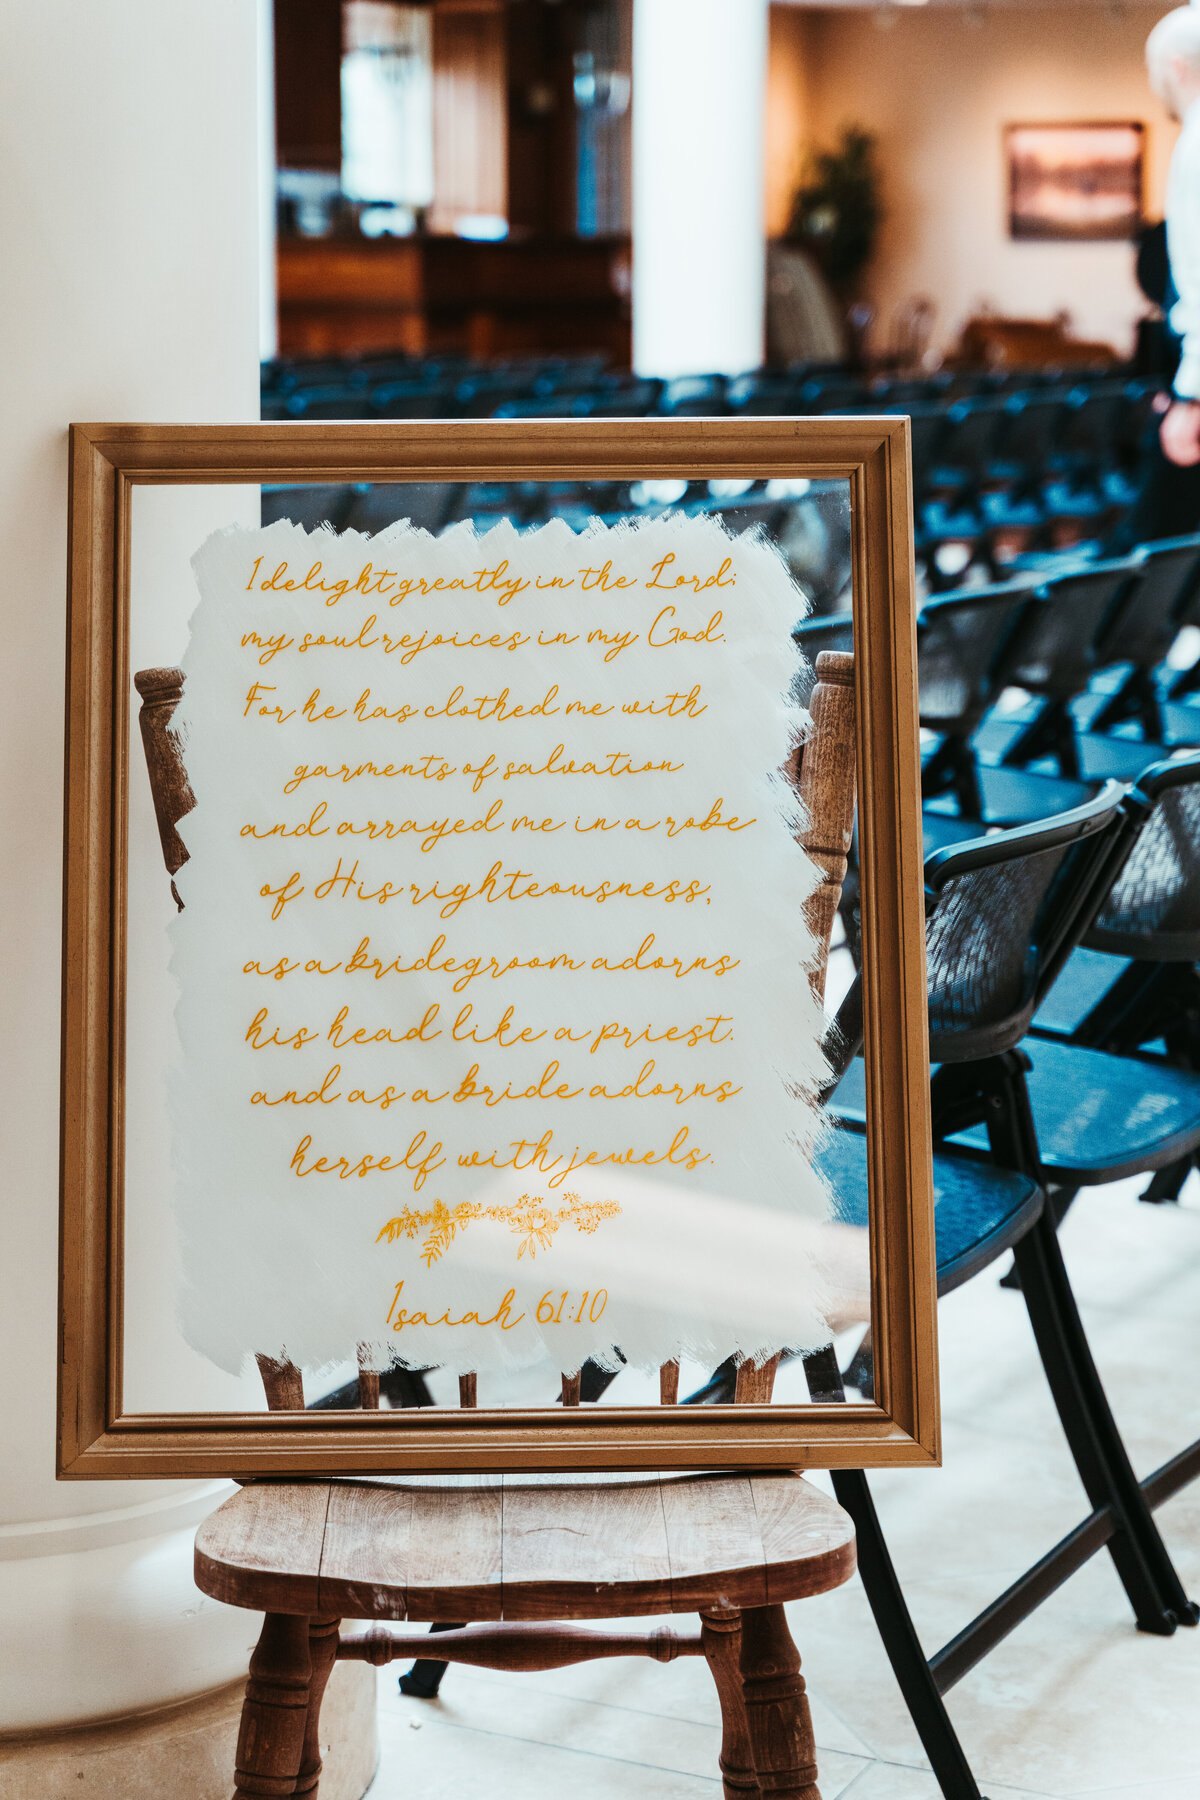 I delight greatly in the Lord;
my soul rejoices in my God.
For he has clothed me with
garments of salvation
and arrayed me in a robe
of His righteousness,
as a bridegroom adorns
his head like a priest.
and as a bride adorns
herself with jewels.
Isaiah 61:10